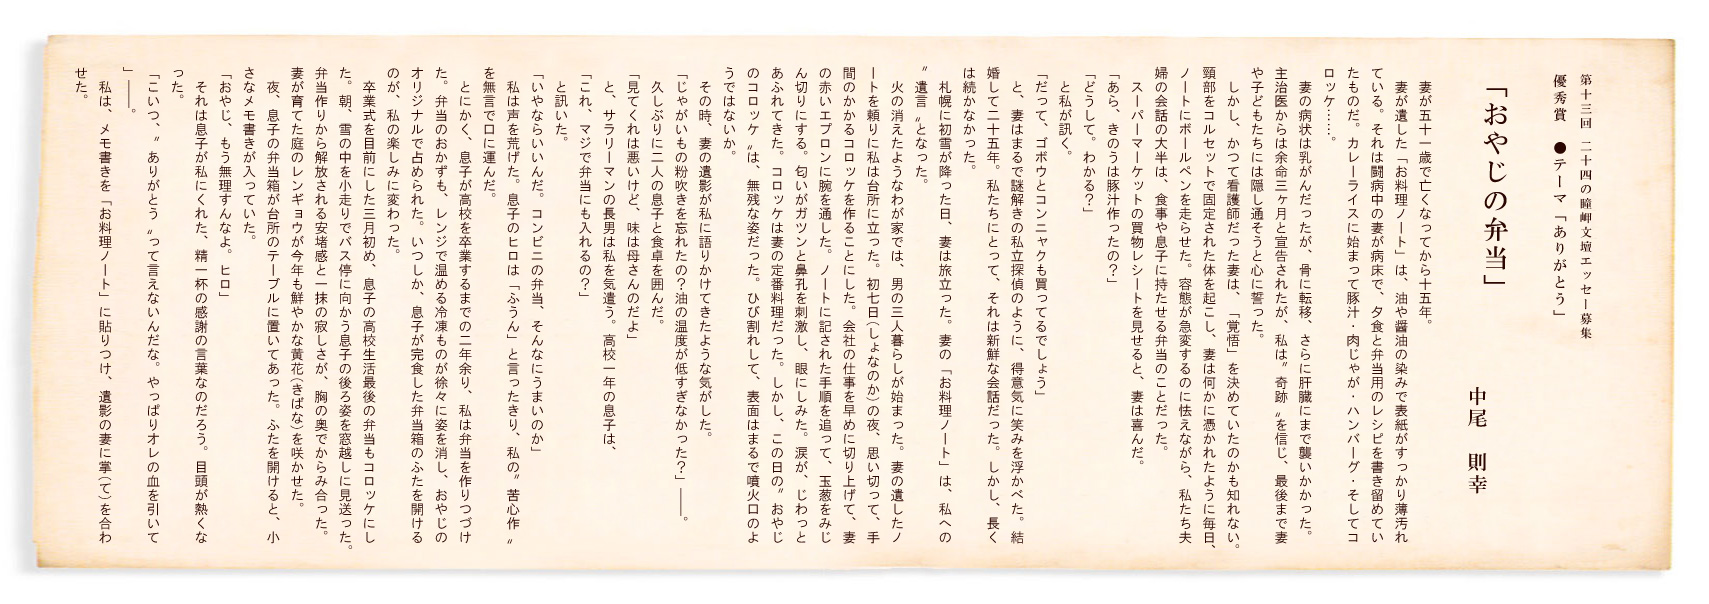 第十三回 二十四の瞳岬文壇エッセー募集
優秀賞 ●テーマ「ありがとう」
「おやじの弁当」
中尾 則幸
妻が五十一歳で亡くなってから十五年。
妻が遺した「お料理ノート」は、油や醤油の染みで表紙がすっかり薄汚れ
ている。それは闘病中の妻が病床で、夕食と弁当用のレシピを書き留めてい
たものだ。カレーライスに始まって豚汁・肉じゃが・ハンバーグ・そしてコ
ロッケ……。
妻の病状は乳がんだったが、骨に転移、さらに肝臓にまで襲いかかった。
主治医からは余命三ヶ月と宣告されたが、私は〝奇跡〟を信じ、最後まで妻
や子どもたちには隠し通そうと心に誓った。
しかし、かつて看護師だった妻は、「覚悟」を決めていたのかも知れない。
頸部をコルセットで固定された体を起こし、妻は何かに憑かれたように毎日、
ノートにボールペンを走らせた。容態が急変するのに怯えながら、私たち夫
婦の会話の大半は、食事や息子に持たせる弁当のことだった。
スーパーマーケットの買物レシートを見せると、妻は喜んだ。
「あら、きのうは豚汁作ったの？」
「どうして。わかる？」
と私が訊く。
「だって、ゴボウとコンニャクも買ってるでしょう」
と、妻はまるで謎解きの私立探偵のように、得意気に笑みを浮かべた。結
婚して二十五年。私たちにとって、それは新鮮な会話だった。しかし、長く
は続かなかった。
札幌に初雪が降った日、妻は旅立った。妻の「お料理ノート」は、私への
〝遺言〟となった。
火の消えたようなわが家では、男の三人暮らしが始まった。妻の遺したノ
ートを頼りに私は台所に立った。初七日(しょなのか)の夜、思い切って、手
間のかかるコロッケを作ることにした。会社の仕事を早めに切り上げて、妻
の赤いエプロンに腕を通した。ノートに記された手順を追って、玉葱をみじ
ん切りにする。匂いがガツンと鼻孔を刺激し、眼にしみた。涙が、じわっと
あふれてきた。コロッケは妻の定番料理だった。しかし、この日の〝おやじ
のコロッケ〟は、無残な姿だった。ひび割れして、表面はまるで噴火口のよ
うではないか。
その時、妻の遺影が私に語りかけてきたような気がした。
「じゃがいもの粉吹きを忘れたの？油の温度が低すぎなかった？」――。
久しぶりに二人の息子と食卓を囲んだ。
「見てくれは悪いけど、味は母さんのだよ」
と、サラリーマンの長男は私を気遣う。高校一年の息子は、
「これ、マジで弁当にも入れるの？」
と訊いた。
「いやならいいんだ。コンビニの弁当、そんなにうまいのか」
私は声を荒げた。息子のヒロは「ふうん」と言ったきり、私の〝苦心作〟
を無言で口に運んだ。
とにかく、息子が高校を卒業するまでの二年余り、私は弁当を作りつづけ
た。弁当のおかずも、レンジで温める冷凍ものが徐々に姿を消し、おやじの
オリジナルで占められた。いつしか、息子が完食した弁当箱のふたを開ける
のが、私の楽しみに変わった。
卒業式を目前にした三月初め、息子の高校生活最後の弁当もコロッケにし
た。朝、雪の中を小走りでバス停に向かう息子の後ろ姿を窓越しに見送った。
弁当作りから解放される安堵感と一抹の寂しさが、胸の奥でからみ合った。
妻が育てた庭のレンギョウが今年も鮮やかな黄花(きばな)を咲かせた。
夜、息子の弁当箱が台所のテーブルに置いてあった。ふたを開けると、小
さなメモ書きが入っていた。
「おやじ、もう無理すんなよ。ヒロ」
それは息子が私にくれた、精一杯の感謝の言葉なのだろう。目頭が熱くな
った。
「こいつ、〝ありがとう〟って言えないんだな。やっぱりオレの血を引いて
」――。
私は、メモ書きを「お料理ノート」に貼りつけ、遺影の妻に掌(て)を合わ
せた。